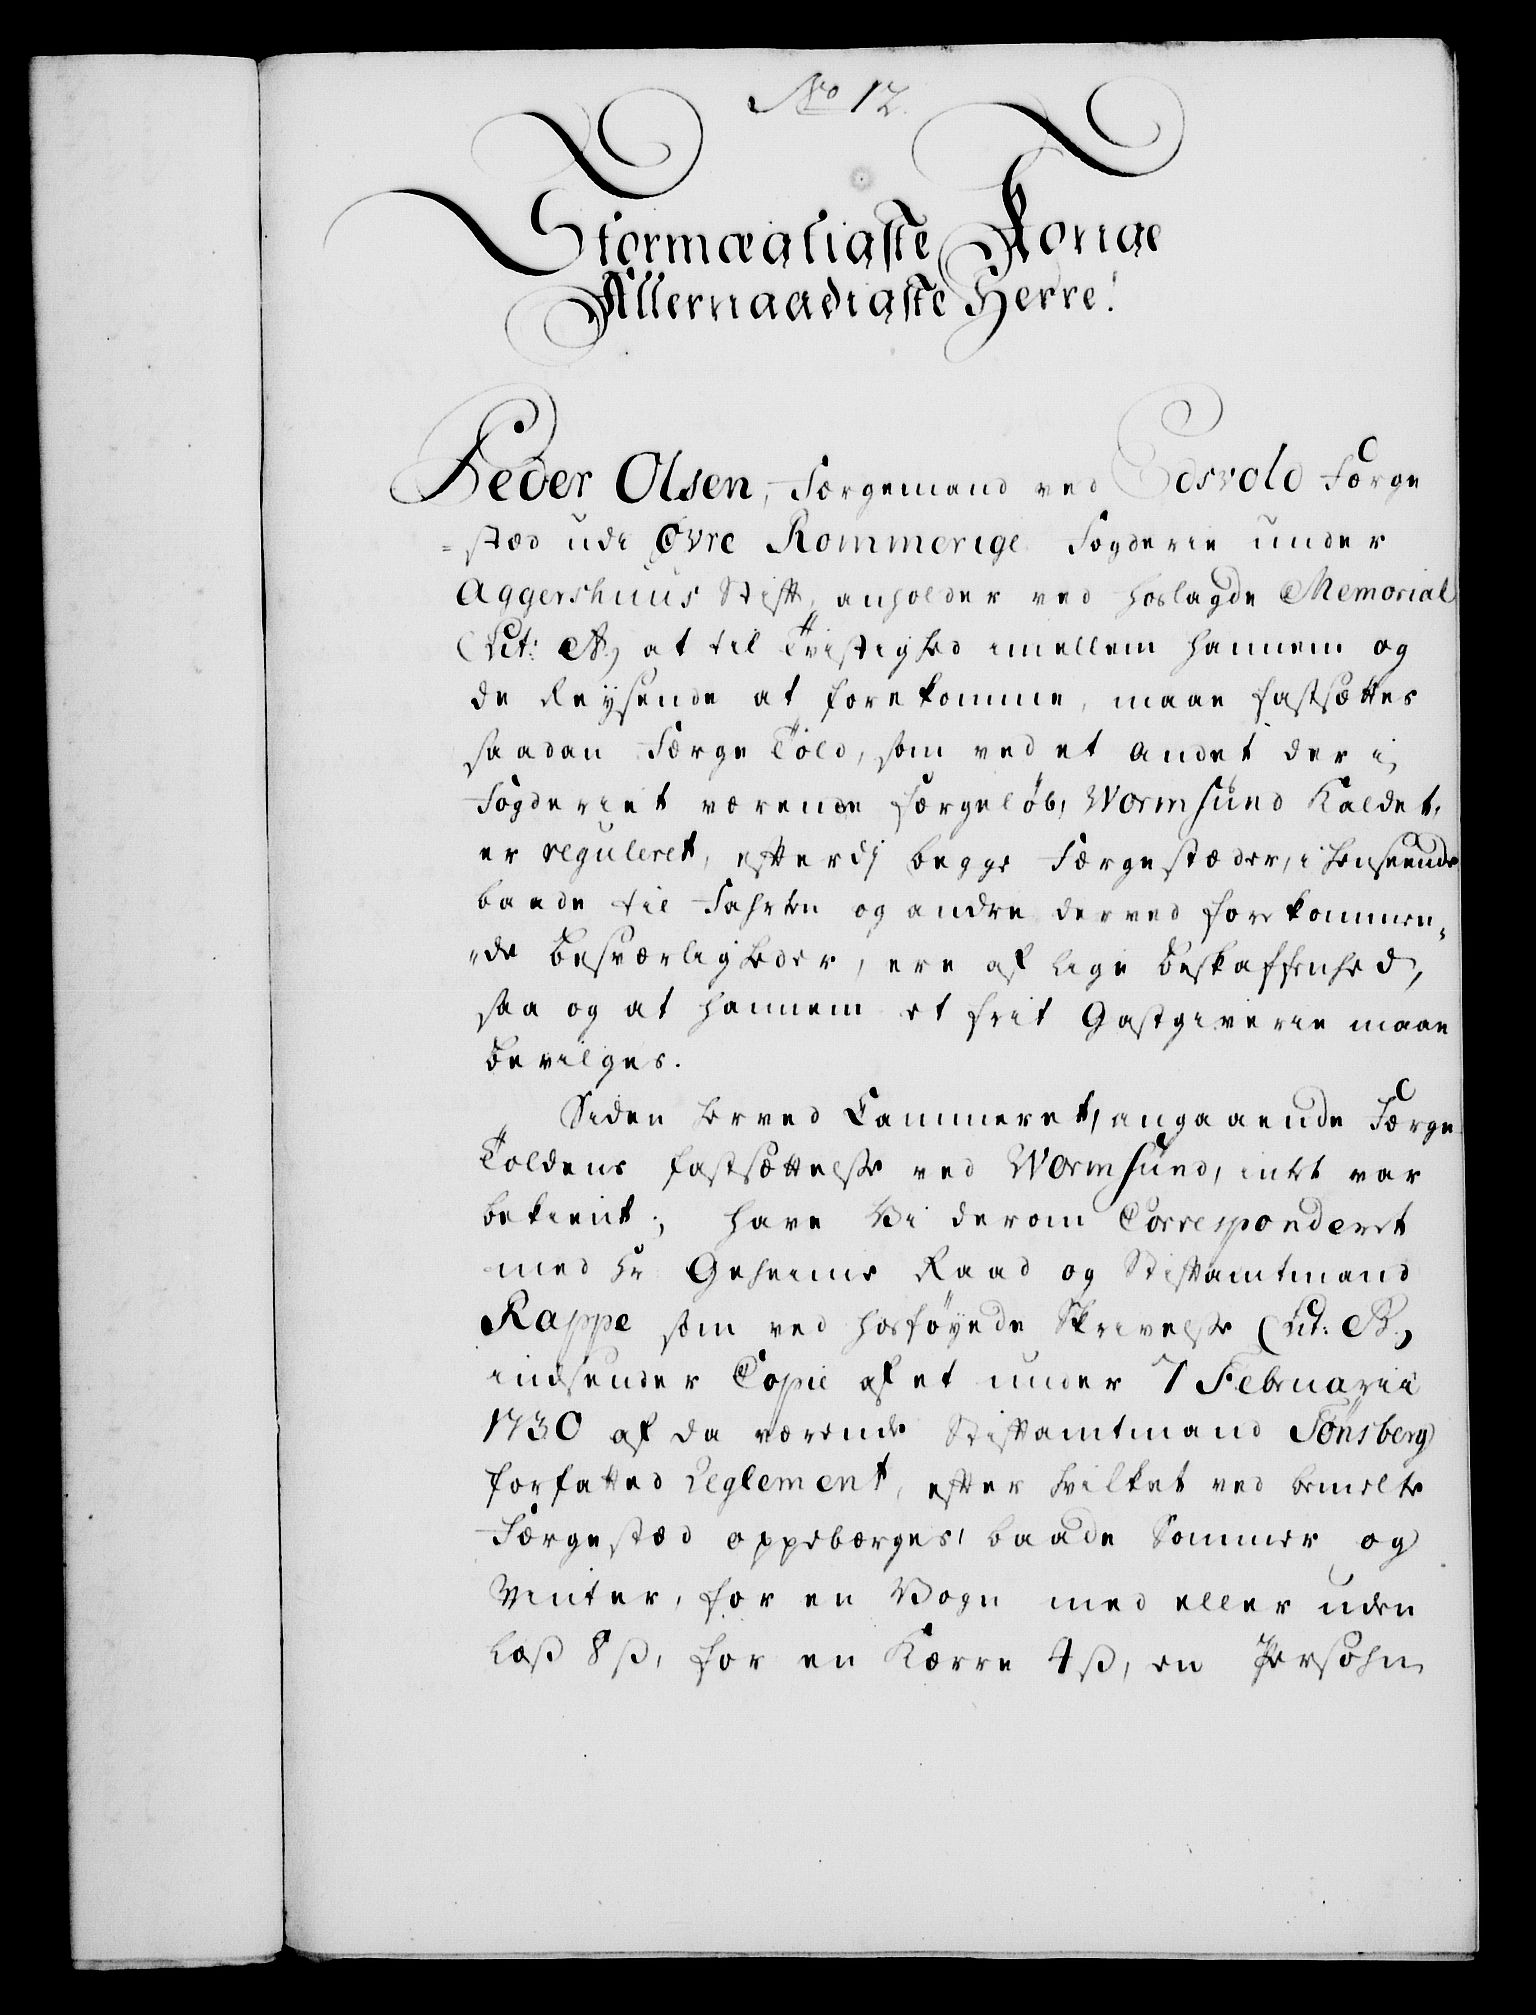 No 12.
Stormægtigste Konge
Allernaadigste Herre!
Peder Olsen, Færgemand ved Edsvold Færge
=stæd udi Øvre Rommerige Fogderie under
Aggershuus Stift, anholder ved hoslagde Memorial
(Lit: A.) at til Tvistighed imellem hannem og
de Reysende at forekomme, maae fastsættes
saadan Færge Told, som ved et andet der i
Fogderiet værende færgeløb, Wormsund kaldet,
er reguleret, efterdj begge Færgestæder, i henseende
baade til Fahrten og andre derved forekommen-
"de besværligheder, ere af lige beskaffenhed,
saa og at hannem et frit Gastgiverie maae
bevilges.
Siden herved Cammeret, angaaende Færge
Toldens fastsættelse ved Wormsund, intet var
bekient; have Vi derom Corresponderet
med Hr Geheime Raad og Stiftamtmand
Rappe som ved hosføyede Skrivelse (Lit: B.)
indsender Copie af et under 7 Februarii
1730 af da værende Stiftamtmand Tönsberg
forfatted Reglement, efter hvilket ved bemelte
Færgestæd oppebærges, baade Sommer og
Vinter, for en Vogn med eller uden
Læß 8 ß, for en Kærre 4 ß, en Persohn